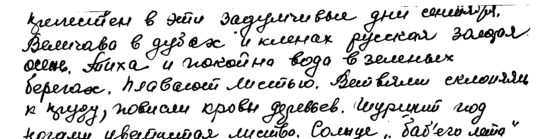 прелестен в эти задумчивые дни сентября.
Величаво в дубах и кленах русская золотая
осень. Тиха и покойна вода в зеленых
берегах. Плавают листья. Ветвями склонясь
к пруду, повисли кроны деревьев. Шуршит под
ногами цветистая листва. Солнце „баб'его лета"